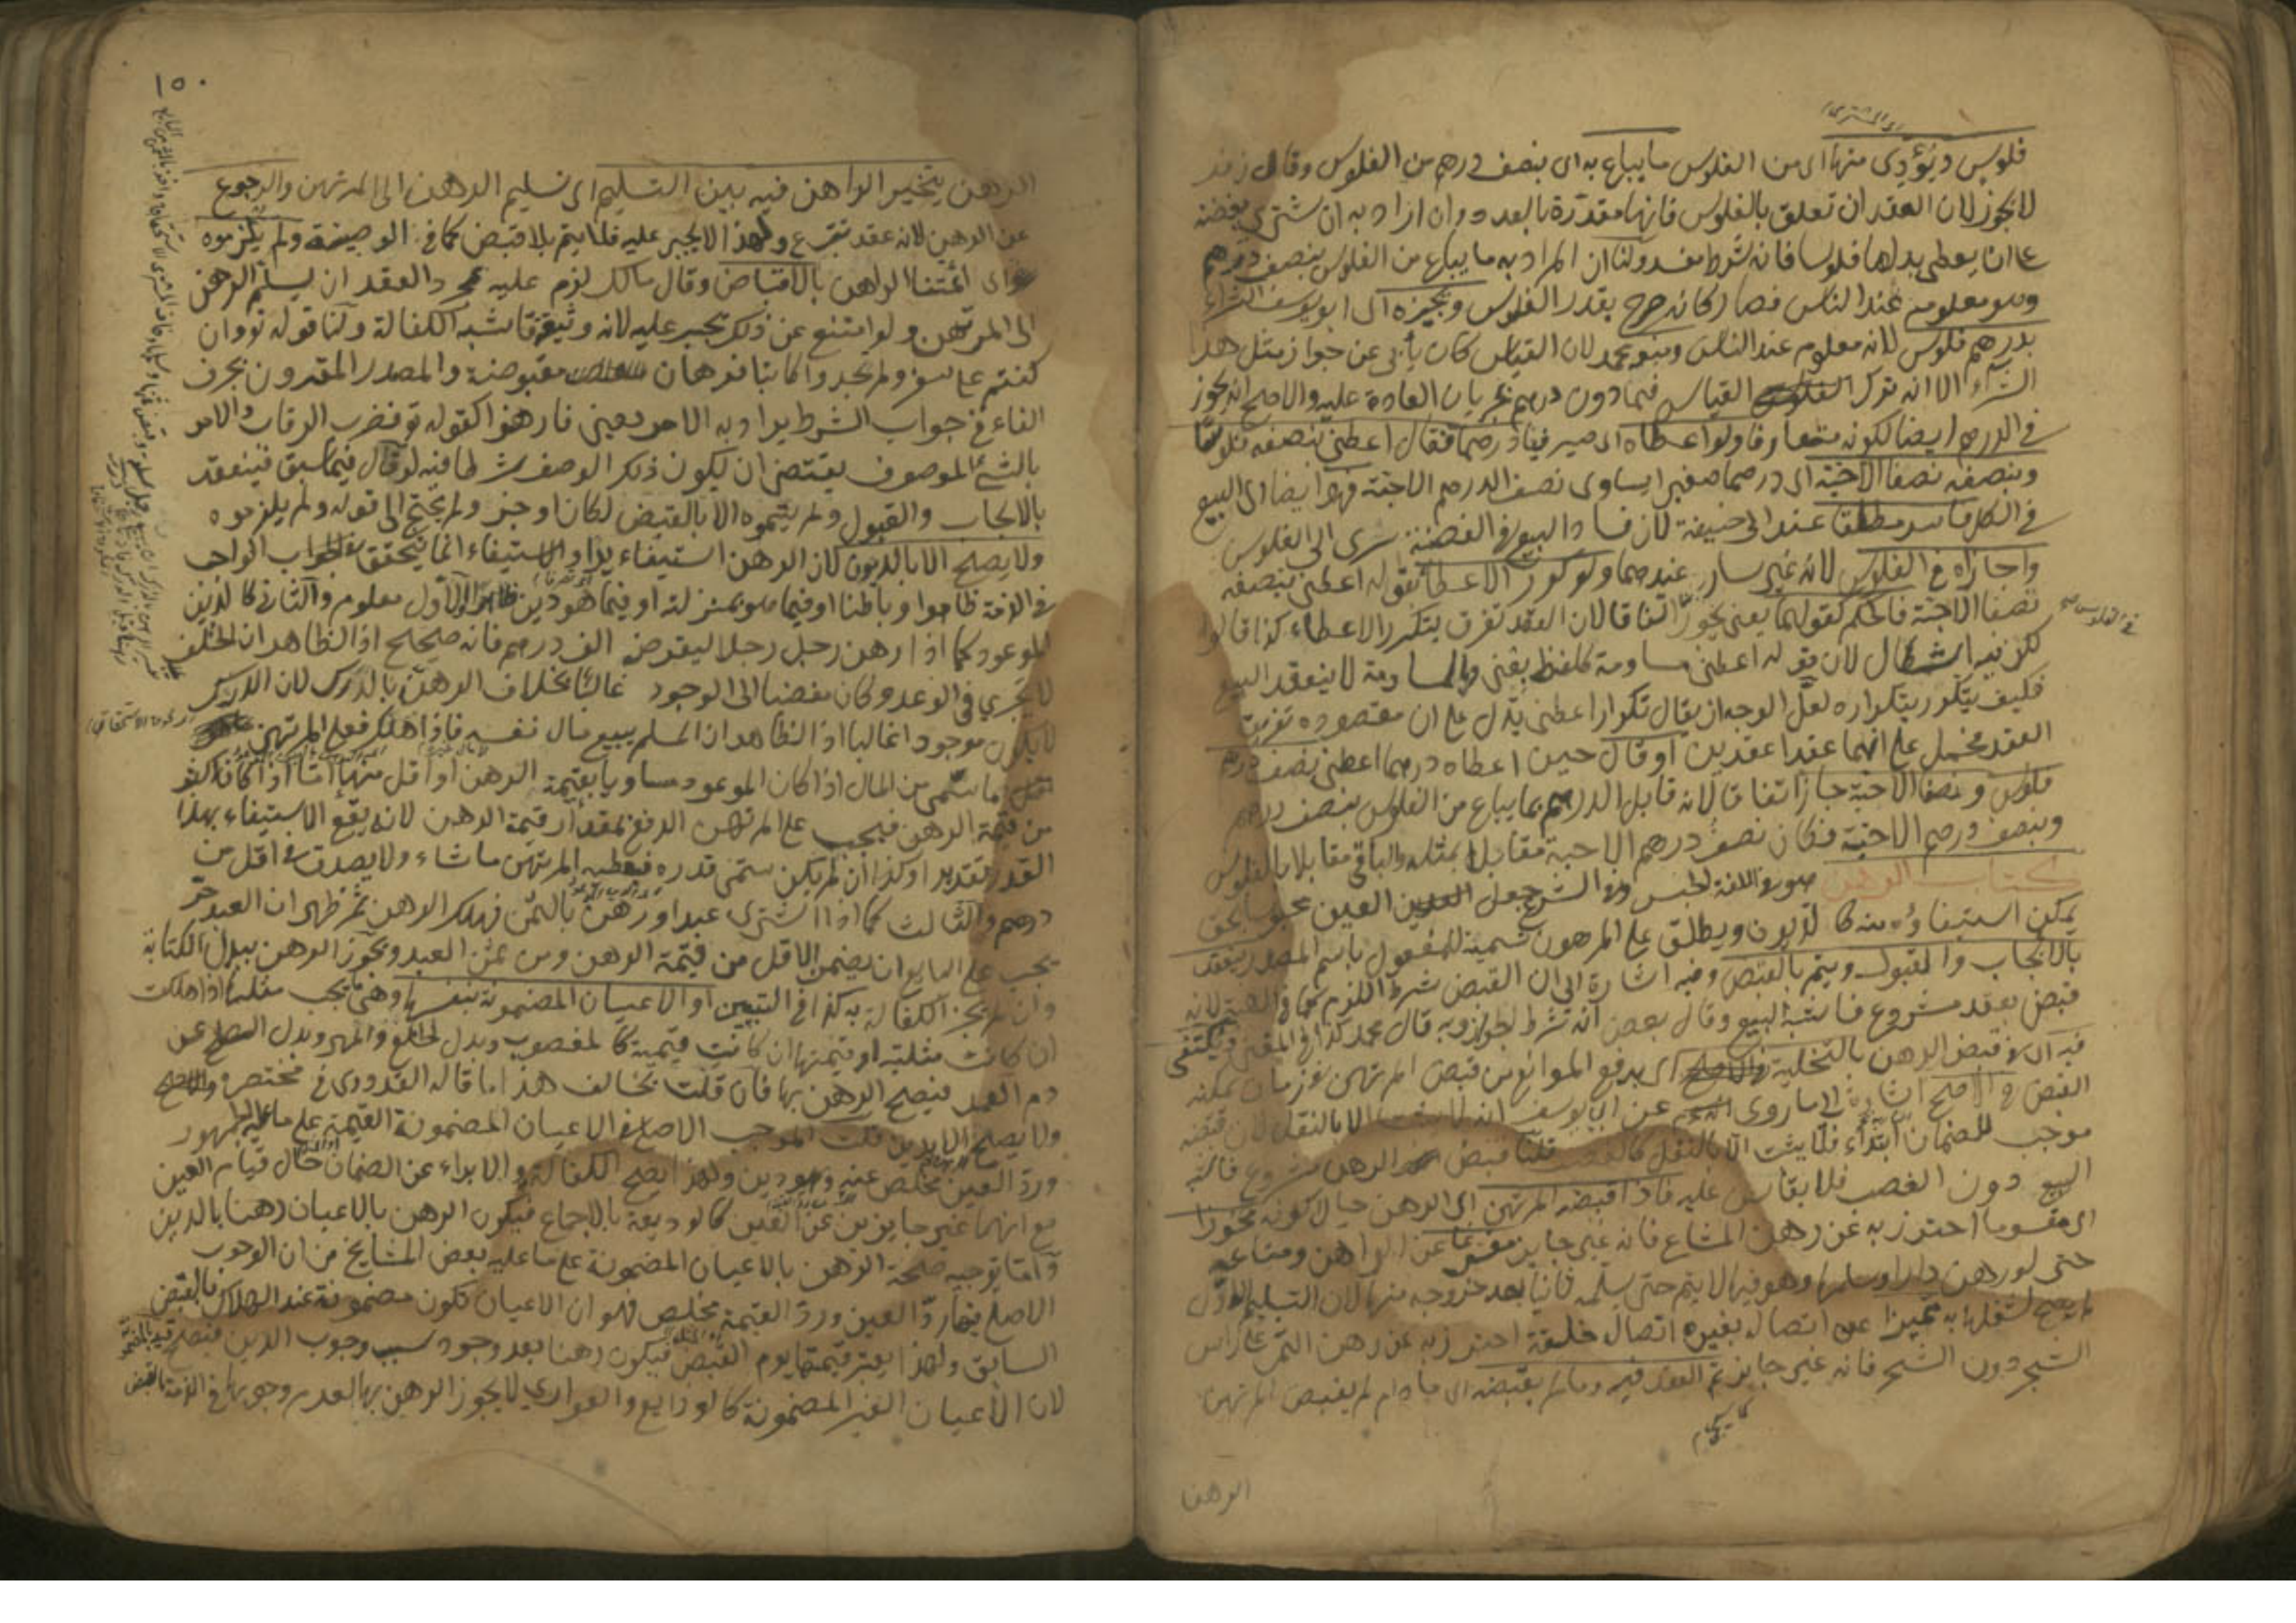 فلوس ويؤدى منها اى من الفلوس ما يباع به اى بنصف درهم من الفلوس وقال زفر
لا يجوز لان العقد ان تعلق بالفلوس فانها مقدرة بالعدد وان اراد به ان يشترى بفضة
على ان يعطى بدلها فلوسا فانه شرط مفسد ولنا ان المراد به ما يباع من الفلوس بنصف درهم
وهو معلوم عند الناس فصار كانه صرح بقدر الفلوس ويجيزه اى ابو يوسف الشراء
بدرهم فلوس لانه معلوم عند الناس ومنعه محمد لان القياس كان يأبى عن جواز مثل هذا
الشراء الا انه ترك القياس فيما دون درهم لجريان العادة عليه والاصح انه يجوز
في الدرهم ايضا لكونه متعارفا ولو اعطاه اى صيرفيا درهما فقال اعطنى بنصفه فلوسا
وبنصفه نصفا الا حبة اى درهما صغيرا يساوى نصف الدرهم الا حبة فهو ايضا اى البيع
في الكل فاسد مطلقا عند ابى حنيفة لان فساد البيع في الفضة سرى الى الفلوس
واجازاه في الفلوس لانه غير سار عندهما ولو كرر الاعطاء بقوله اعطنى بنصفه
نصفا الا حبة فالحكم كقولهما يعنى يجوز اتفاقا لان العقد تفرق بتكرر الاعطاء كذا قالوا
في الفلوس صح
لكن فيه اشكال لان قوله اعطنى مساومة كلفظ بعنى وبالمساومة لا ينعقد البيع
فكيف يتكرر بتكراره لعل الوجه ان يقال تكرار اعطنى يدل على ان مقصوده تفريق
العقد فحمل على انهما عقدا عقدين او قال حين اعطاه درهما اعطنى نصف درهم
فلوس ونصفا الا حبة جاز اتفاقا لانه قابل الدرهم بما يباع من الفلوس بنصف درهم
وبنصف درهم الا حبة فكان نصف درهم الا حبة مقابلا بمثله والباقى مقابلا بالفلوس
كتاب الرهن هو في اللغة الحبس وفي الشرع جعل العين محبوسا بحق
يمكن استيفاؤه منه كالديون ويطلق على المرهون تسمية للمفعول باسم المصدر ينعقد
بالايجاب والقبول ويتم بالقبض وفيه اشارة الى ان القبض شرط اللزوم كما في الهبة لانه
قبض بعقد مشروع فاشبه البيع وقال بعض انه شرط الجواز وبه قال محمد كذا في المقنى ويكتفى
فيه اى في قبض الرهن بالتخلية اى برفع الموانع من قبض المرتهن في زمان يمكنه
القبض في الاصح اشارة الى ما روى عن ابى يوسف انه لا يثبت الا بالنقل لان قبضه
موجب للضمان ابتداء فلا يثبت الا بالنقل كالغصب قلنا قبض الرهن مشروع فاشبه
البيع دون الغصب فلا يقاس عليه فاذا قبضه المرتهن اى الرهن حال كونه محوزا
اى مقسوما احترز به عن رهن المشاع فانه غير جايز مفرغا عن الراهن ومتاعه
حتى لو رهن دارا وسلمها وهو فيها لا يتم حتى يسلمه ثانيا بعد خروجه منها لان التسليم الاول
لم يصح لشغلها به مميزا عن اتصاله بغيره اتصال خلقة احترز به عن رهن الثمر على راس
الشجر دون الشجر فانه غير جايز تم العقد فيه وما لم يقبضه اى مادام لم يقبض المرتهن
الرهن
١٥٠
الرهن يتخير الراهن فيه بين التسليم اى تسليم الرهن الى المرتهن والرجوع
عن الرهن لانه عقد تبرع ولهذا لا يجبر عليه فلا يتم بلا قبض كما في الوصية ولم يلزموه
اى ائمتنا الراهن بالاقباض وقال مالك لزم عليه بمجرد العقد ان يسلم الرهن
الى المرتهن ولو امتنع عن ذلك يجبر عليه لانه وثيقة فاشبه الكفالة ولنا قوله تع وان
كنتم على سفر ولم تجدوا كاتبا فرهان مقبوضة والمصدر المقرون بحرف
الفاء في جواب الشرط يراد به الامر يعنى فارهنوا كقوله تع فضرب الرقاب والامر
بالشئ الموصوف يقتضى ان يكون ذكر الوصف شرطا فيه لو قال فيما سبق فينعقد
بالايجاب والقبول ولم يتموه الا بالقبض لكان اوجز ولم يحتج الى قوله ولم يلزموه
ولا يصح الا بالديون لان الرهن استيفاء يدا والاستيفاء انما يتحقق في الواجب
في الذمة ظاهرا وباطنا او فيما هو بمنزلته او فيما هو دين ظاهرا الاول معلوم والثانى كالدين
الموعود كما اذا رهن رجل رجلا ليقرضه الف درهم فانه صحيح اذ الظاهر ان الخلف
لا يجري في الوعد وكان مفضيا الى الوجود غالبا بخلاف الرهن بالدرك لان الدرك
لا يكون موجودا غالبا اذ الظاهر ان المسلم يبيع مال نفسه فاذا هلك فعلى المرتهن
ما سمى من المال اذا كان الموعود مساويا بقيمة الرهن او اقل منها اما اذا كان اكثر
من قيمة الرهن فيجب على المرتهن الدفع بمقدار قيمة الرهن لانه يقع الاستيفاء بهذا
القدر تقديرا وكذا ان لم يكن سمى قدره فيعطيه المرتهن ما شاء ولا يصدق في اقل من
درهم والثالث كما اذا اشترى عبدا ورهن بالثمن فهلك الرهن ثم ظهر ان العبد حر
يجب على البايع ان يضمن الاقل من قيمة الرهن ومن ثمن العبد ويجوز الرهن ببدل الكتابة
وان لم يجز الكفالة به كذا في التبيين او الاعيان المضمونة بنفسها وهي ما يجب مثلها اذا هلكت
ان كانت مثلية او قيمتها ان كانت قيمية كالمغصوب وبدل الخلع والمهر وبدل الصلح عن
دم العمد فيصح الرهن بها فان قلت يخالف هذا ما قاله القدورى في مختصره
ولا يصح الا بدين قلت الموجب الاصلى في الاعيان المضمونة القيمة على ما عليه الجمهور
ورد العين مخلص عنه وهو دين ولهذا يصح الكفالة والابراء عن الضمان حال قيام العين
مع انهما غير جايزين عن العين كالوديعة بالاجماع فيكون الرهن بالاعيان رهنا بالدين
واما توجيه صحة الرهن بالاعيان المضمونة على ما عليه بعض المشايخ من ان الوجوب
الاصلى فيها رد العين ورد القيمة مخلص فهو ان الاعيان تكون مضمونة عند الهلاك بالقبض
السابق ولهذا يعتبر قيمتها يوم القبض فيكون رهنا بعد وجود سبب وجوب الدين فيصح قيد بالمضمونة
لان الاعيان الغير المضمونة كالودايع والعواري لا يجوز الرهن بها لعدم وجوبها في الذمة بالقبض